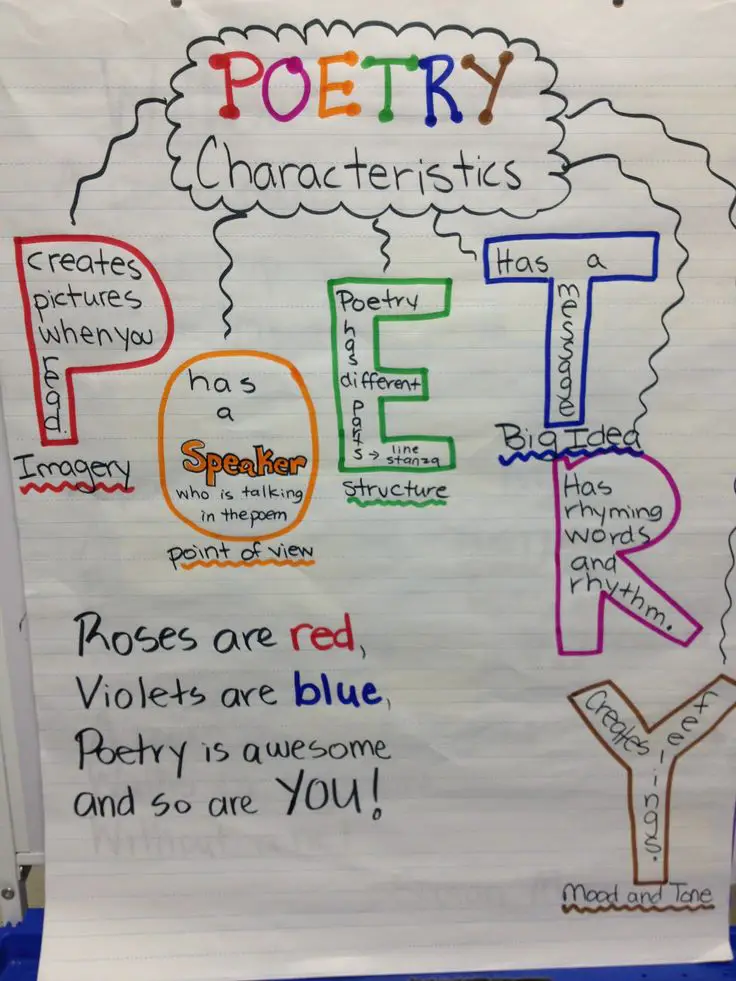 POETRY
Characteristics
creates
pictures
when you
read.
Imagery
has
a
Speaker
who is talking
in the poem
point of view
Poetry
has
different
parts → line
stanza
structure
Has a
message
Big Idea
Has
rhyming
words
and
rhythm.
Creates
feelings.
Mood and Tone
Roses are red,
Violets are blue,
Poetry is awesome
and so are YOU!